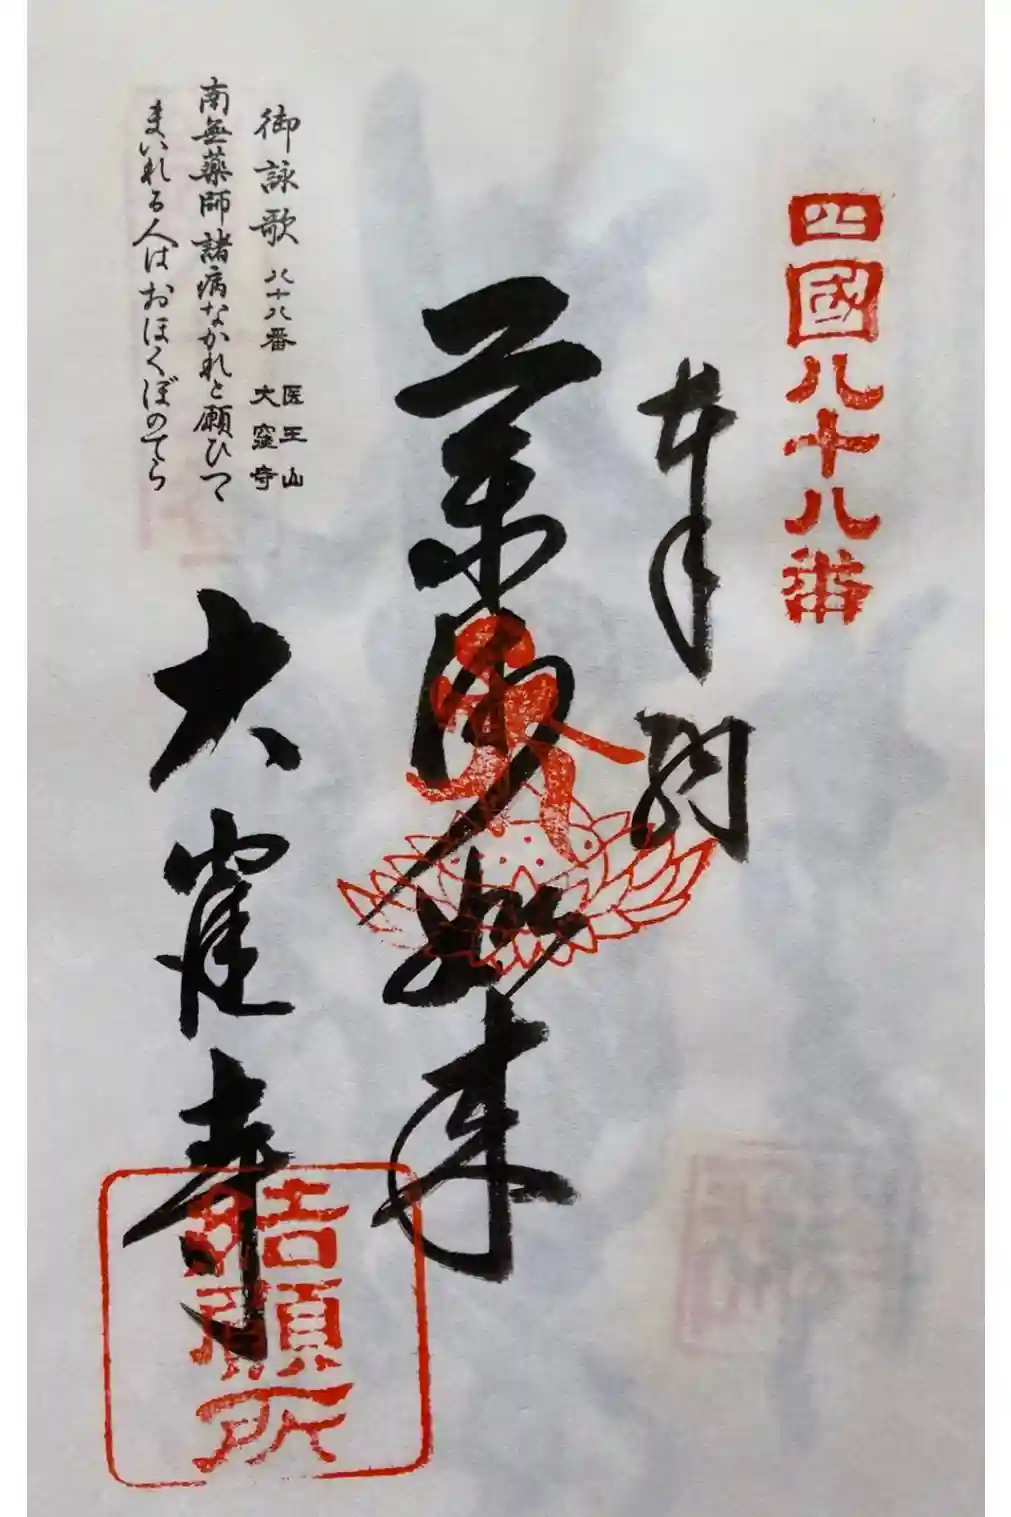 四國八十八番
奉納
薬師如来
大窪寺
結願所
御詠歌 八十八番 医王山 大窪寺
南無薬師諸病なかれと願ひつゝ
まいれる人はおほくぼのてら